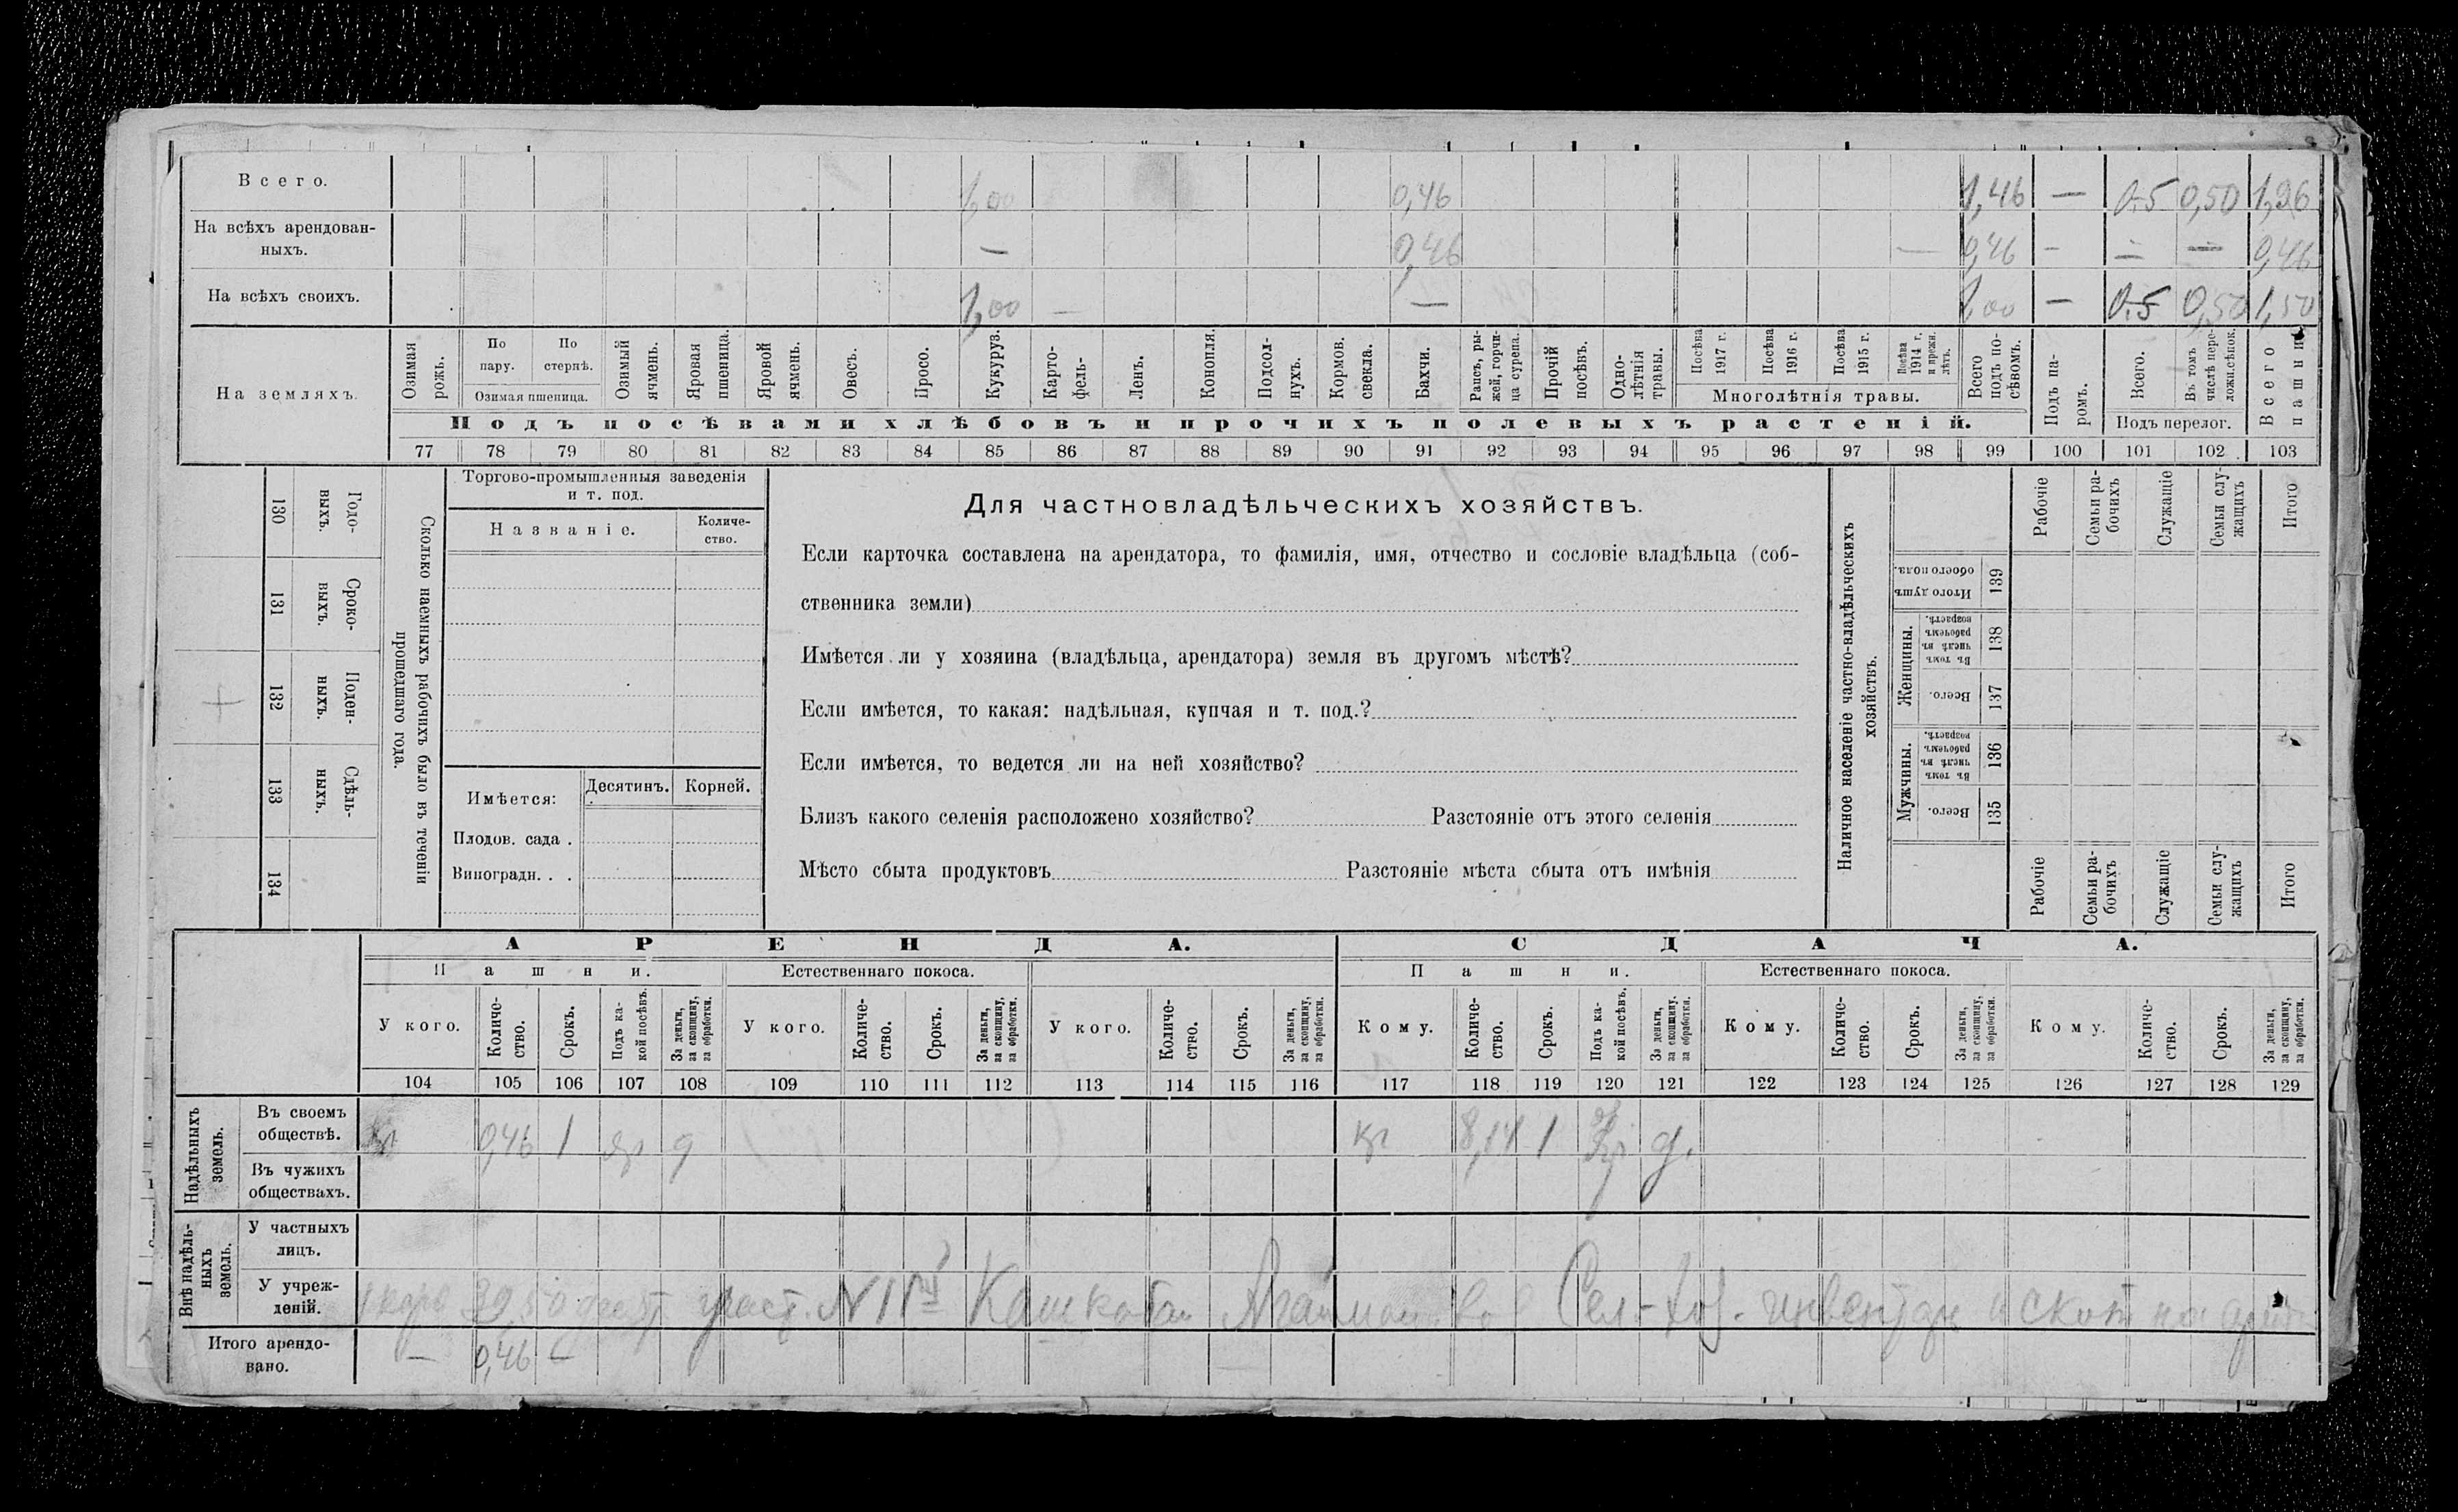 Всего. 1,00 0,46 1,46 — 0.5 0,50 1,96
На всѣхъ арендован-
ныхъ. — 0,46 — 0,46 — — — 0,46
На всѣхъ своихъ. 1,00 — — 1,00 — 0.5 0,50 1,50
На земляхъ.
Озимая рожь.
По пару.
По стернѣ.
Озимая пшеница.
Озимый ячмень.
Яровая пшеница.
Яровой ячмень.
Овесъ.
Просо.
Кукуруз.
Карто-
фель-
Ленъ.
Конопля.
Подсол-
нухъ.
Кормов. свекла.
Бахчи.
Рапсъ, ры-
жей, горчи-
ца сурепа.
Прочій посѣвъ.
Одно-
лѣтнія травы.
Посѣва 1917 г.
Посѣва 1916 г.
Посѣва 1915 г.
Посѣва 1914 г. и прежн. лѣтъ.
Многолѣтнія травы.
Всего подъ по-
сѣвомъ.
Подъ посѣвами хлѣбовъ и прочихъ полевыхъ растеній.
Подъ па-
ромъ.
Всего.
Въ томъ числѣ пере-
ложн.сѣнок.
Подъ перелог.
Всего пашни
77 78 79 80 81 82 83 84 85 86 87 88 89 90 91 92 93 94 95 96 97 98 99 100 101 102 103
130 Годо-
выхъ.
131 Сроко-
ныхъ.
132 Поден-
ныхъ.
133 Сдѣль-
ныхъ.
134
Сколько наемныхъ рабочихъ было въ теченіи
прошедшаго года.
Торгово-промышленныя заведенія
и т. под.
Названіе.
Количе-
ство.
Имѣется: Десятинъ. Корней.
Плодов. сада .
Виноградн. . .
Для частновладѣльческихъ хозяйствъ.
Если карточка составлена на арендатора, то фамилія, имя, отчество и сословіе владѣльца (соб-
ственника земли)
Имѣется ли у хозяина (владѣльца, арендатора) земля въ другомъ мѣстѣ?
Если имѣется, то какая: надѣльная, купчая и т. под.?
Если имѣется, то ведется ли на ней хозяйство?
Близъ какого селенія расположено хозяйство? Разстояніе отъ этого селенія
Мѣсто сбыта продуктовъ Разстояніе мѣста сбыта отъ имѣнія
Наличное населеніе частно-владѣльческихъ
хозяйствъ.
Рабочіе
Семьи ра-
бочихъ
Служащіе
Семьи слу-
жащихъ
Итого
Итого душъ обоего пола. 139
Женщины.
Въ томъ числѣ въ рабочемъ возрастѣ. 138
Всего. 137
Мужчины.
Въ томъ числѣ въ рабочемъ возрастѣ. 136
Всего. 135
Рабочіе
Семьи ра-
бочихъ
Служащіе
Семьи слу-
жащихъ
Итого
АРЕНДА. СДАЧА.
Пашни. Естественнаго покоса. Пашни. Естественнаго покоса.
У кого. Количе-
ство. Срокъ. Подъ ка-
кой посѣвъ. За деньги, за скопщину, за обработки.
У кого. Количе-
ство. Срокъ. За деньги, за скопщину, за обработки.
У кого. Количе-
ство. Срокъ. За деньги, за скопщину, за обработки.
Кому. Количе-
ство. Срокъ. Подъ ка-
кой посѣвъ. За деньги, за скопщину, за обработки.
Кому. Количе-
ство. Срокъ. За деньги, за скопщину, за обработки.
Кому. Количе-
ство. Срокъ. За деньги, за скопщину, за обработки.
104 105 106 107 108 109 110 111 112 113 114 115 116 117 118 119 120 121 122 123 124 125 126 127 128 129
Надѣльныхъ
земель.
Въ своемъ
обществѣ. 0,46 1 яр д кр 8,14 1 д.
Въ чужихъ
обществахъ.
Внѣ надѣль-
ныхъ
земель.
У частныхъ
лицъ.
У учреж-
деній. 39,50 участ. N II Сел-хоз. инвентарь и скот на
Итого арендо-
вано. — 0,46 —